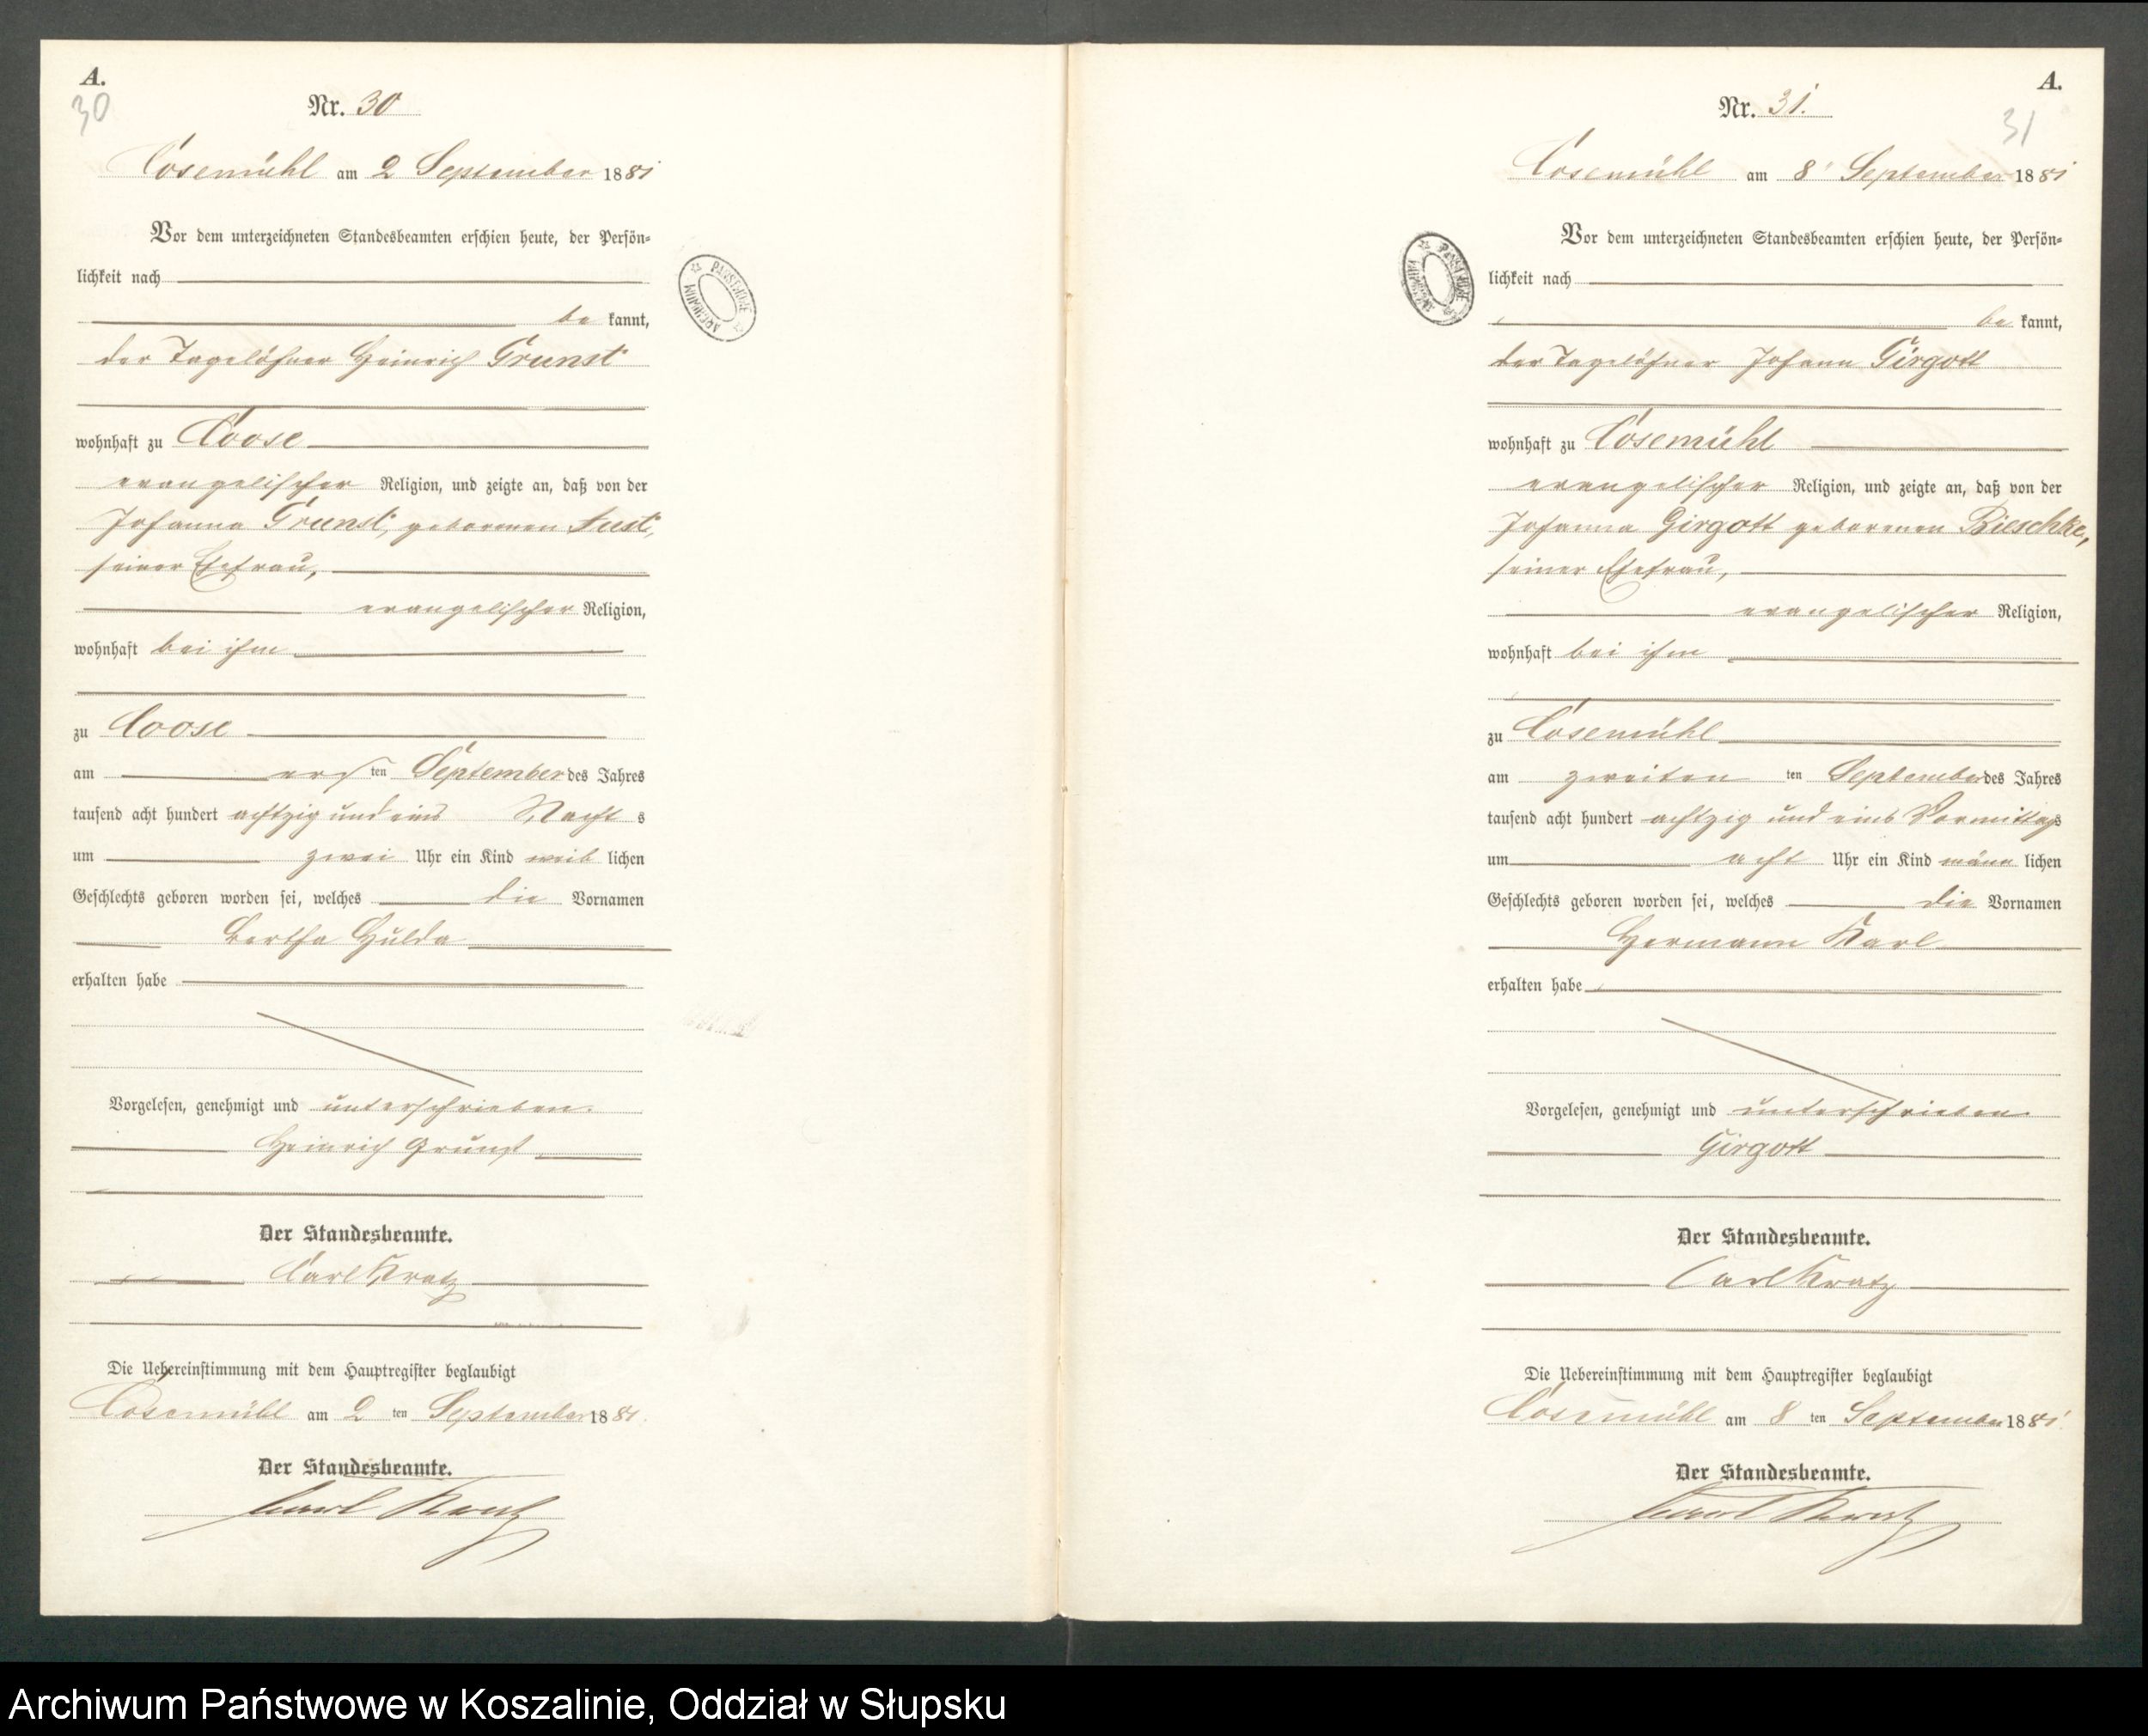 A.
30
Nr. 30
Cosemühl am 2 September 1881
Vor dem unterzeichneten Standesbeamten erschien heute, der Persön-
lichkeit nach
be kannt,
der Tagelöhner Heinrich Grunst
wohnhaft zu Coose
evangelischer Religion, und zeigte an, daß von der
Johanna Grunst, geborenen
seiner Ehefrau,
evangelischer Religion,
wohnhaft bei ihm
zu Coose
am ersten September des Jahres
tausend acht hundert achtzig und eins Nacht s
um zwei Uhr ein Kind weib lichen
Geschlechts geboren worden sei, welches die Vornamen
Bertha Hulda
erhalten habe
Vorgelesen, genehmigt und unterschrieben.
Heinrich Grunst
Der Standesbeamte.
Carl Kratz
Die Uebereinstimmung mit dem Hauptregister beglaubigt
Cosemühl am 2 ten September 1881.
Der Standesbeamte.
Carl Kratz
ARCHIWUM PAŃSTWOWE
A.
31
Nr. 31.
Cosemühl am 8 September 1881
Vor dem unterzeichneten Standesbeamten erschien heute, der Persön-
lichkeit nach
be kannt,
der Tagelöhner Johann Girgott
wohnhaft zu Cosemühl
evangelischer Religion, und zeigte an, daß von der
Johanna Girgott geborenen Bieschke,
seiner Ehefrau,
evangelischer Religion,
wohnhaft bei ihm
zu Cosemühl
am zweiten ten September des Jahres
tausend acht hundert achtzig und eins Vormittags
um acht Uhr ein Kind männ lichen
Geschlechts geboren worden sei, welches die Vornamen
Hermann Karl
erhalten habe
Vorgelesen, genehmigt und unterschrieben.
Girgott
Der Standesbeamte.
Carl Kratz
Die Uebereinstimmung mit dem Hauptregister beglaubigt
Cosemühl am 8 ten September 1881.
Der Standesbeamte.
Carl Kratz
ARCHIWUM PAŃSTWOWE
Archiwum Państwowe w Koszalinie, Oddział w Słupsku